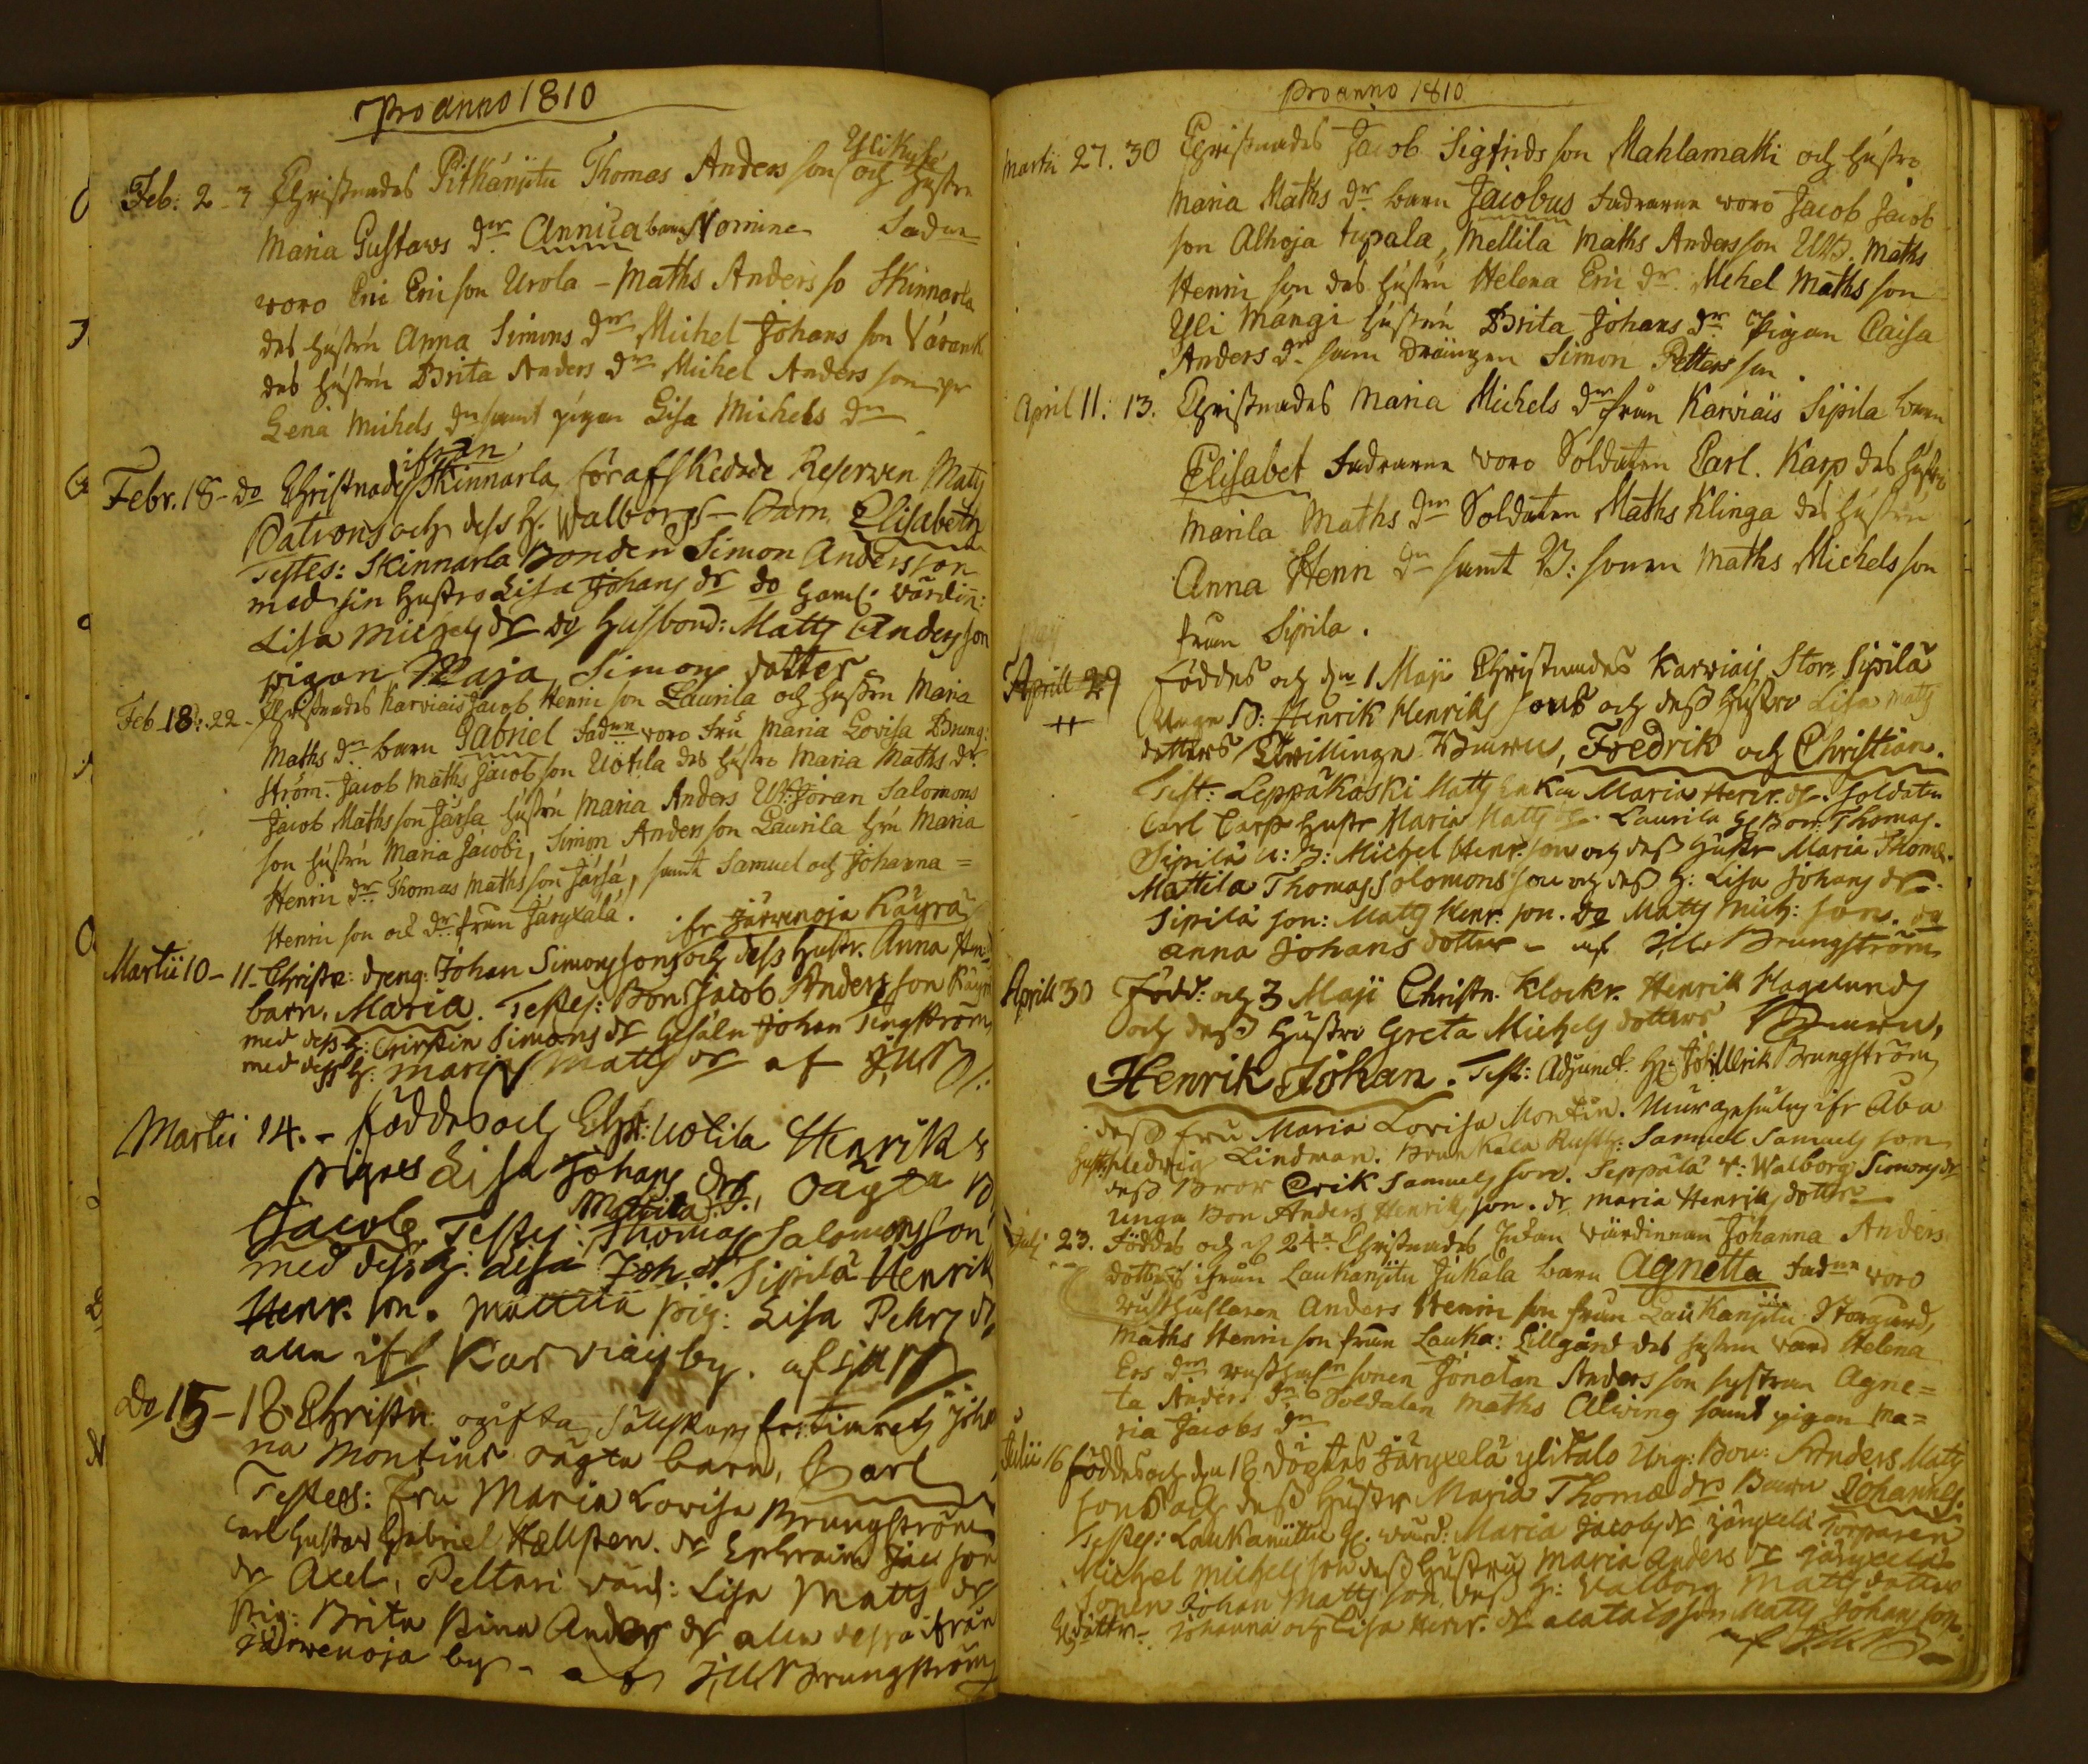 Pro anno 1810
Ylikylä
Feb: 2-3 Christnades Pitkänjitu Thomas Anders son och hustru
Maria Gustavs dr Annica barn Nomine Fadne
voro Eric Eric son Urola - Maths Anders so Skinnarla
des hustru Anna Simons dr Michel Johans son
des hustru Brita Anders dr Michel Anders son
Lena Michels dr samt pigan Lisa Michels dr
ifrån
Febr. 18-do Christnades Skinnarla förafskedade Reserven Matts
Patrons och dess H. Walborgs Barn Elisabeth
Testes: Skinnarla Bonden Simon Andersson
med sin hustro Lisa Johans dr do gaml. värdin:
Lisa Michels dr do husbond: Matts Andersson
pigan Maja Simons dotter
Feb. 18: 22 - Christnades Karviais Jacob Henric son Laurila och hustru Maria
Maths dr barn Gabriel Fadne voro Fru Maria Lovisa Brung:
ström. Jacob Maths Jacob son Uotila des hustro Maria Maths dr
Jacob Maths son Järsä hustru Maria Anders Joran Salomons
son hustru Maria Jacobi, Simon Anders son Laurila hru Maria
Henric dr Thomas Maths son Järsä, samt Samuel och Johanna =
Henric son och dr från Järyxälä.
ifr Järvenoja Käyrä
Martii 10-11- Christn: dreng: Johan Simons sons och dess hustr. Anna
barn, Maria. Testes: Bon: Jacob Anders son
med dess H: Cristin Simons dr Gesäln Johan Tengström
med dess H: Maria Matts dr af JUB:
Martii 14.- föddes och Chr: Uotila Henriks
pigas Lisa Johans drs oägta B
Mattila
Jacob. Testes: Thomas Salomonsson
med dess H: Lisa Joh. dr. Sipilä Henrik
Henr. son. Mattila pig: Lisa Pehrs dr
alla ifr Karviais by. af JUB
Do 15-18 Christn: ogifta Sällskaps Johan
na Montins oägta barn, Carl
Testes: Fru Maria Lovisa Brungström
Carl Gustav Gabriel Hællsten. dr Ephraim Jac son
dr Axel, Peltari värd: Lisa Matts dr
pig: Brita Stina Anders dr alla dessa ifrån
Järvenoja by - af JUBrungström
Pro anno 1810
Martii 27. 30 Christnades Jacob Sigfrids son Mahlamäki och hustro
Maria Maths dr barn Jacobus Fadrarne voro Jacob Jacob
son Alhoja tupala, Mellila Maths Anders son UB. Maths
Henric son des hustru Helena Eric dr. Mihel Maths son
Yli Mängi hustru Brita Johans dr Pigan Caisa
Anders dr sam drängen Simon Petters son.
April 11. 13. Christnades Maria Michels dr från Karviais Sipila barn
Elisabet Fadrarne voro Soldaten Carl. Karp des hustro
Marila Maths dr Soldaten Maths Klinga des hustru
Anna Henri dr samt B: sonen Maths Michels son
från Sipila.
Aprill 29 Föddes och den 1 Maji Christnades Karviais Stor Sipilä
Unga B: Henrik Henriks sons och dess hustro Lisa Matts
dotters Tvillinge Barn, Fredrik och Christian.
Test: Leppäkoski Matts Enkan Maria Henr. dr. Soldaten
Carl Carp hustr Maria Matts dr. Laurila Gl Bon: Thomas.
Sipilä u: B: Michel Henr. son och dess Hustr Maria Thom.
Mattila Thomas Solomons son och dess H: Lisa Johans dr.
Sipilä son: Matts Henr. son. do Matts Mich: son. do
Anna Johans dotter - af JUBrungström
Aprill 30 Född: och 3 Maji Christn. Klockr. Henrik Hagelunds
och dess Hustro Greta Michels dotters Barn,
Henrik Johan. Test: Adjunct. Hr Joh: Ulrik Brungström
dess fru Maria Lovisa Montin. ifr Åbo
hustr Hedvig Lindman. Brunkala Rusth: Samuel Samuels son
dess Bror Erik Samuels son. Seppälä v: Walborg Simons dr
unga Bon Anders Henriks son. dr Maria Henriks dotter
23. Föddes och d 24n Christnades Enkan värdinnan Johanna Anders
dotters ifrån Laukanjitu Jukala barn Agnetta Fadne voro
Rusthållaren Anders Henric son från Laukanjitu Storgård,
Maths Henric son från Lauka: Lillgård des hustru Helena
Ers dr rusth: sonen Jonatan Anders son systran Agne=
ta Anders dr Soldaten Maths Alwing samt pigan Ma=
ria Jacobs dr
Julii 16 föddes och den 18 döptes Järyxelä ylitalo Ung: Bon: Anders Matts
sons och dess Hustr Maria Thomæ drs Barn Johannes.
Testes: Laukanitu Gl. värd: Maria Jacobs dr Järyxelä Torparen
Michel Michels son dess Hustru Maria Anders dr Järyxelä
sonen Johan Matts son, dess H: Valborg Matts dotter
döttr. Johanna och Lisa Henr. dr alatalo son Matts Johans son.
af JUB